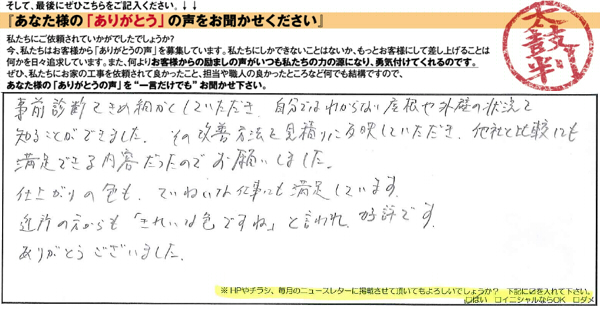 そして、最後にぜひこちらをご記入ください。↓↓
『あなた様の「ありがとう」の声をお聞かせください』
私たちにご依頼されていかがでしたでしょうか?
今、私たちはお客様から「ありがとうの声」を募集しています。私たちにしかできないことはないか、もっとお客様にして差し上げることは
何かを日々追求しています。また、何よりお客様からの励ましの声がいつも私たちの力の源になり、勇気付けてくれるのです。
ぜひ、私たちにお家の工事を依頼されて良かったこと、担当や職人の良かったところなど何でも結構ですので、
あなた様の「ありがとうの声」を“一言だけでも”お聞かせ下さい!
太鼓判
事前診断できめ細かくしていただき、自分ではわからない屋根や外壁の状況を
知ることができました。その改善方法を見積りに反映していただき、他社と比較しても
満足できる内容だったのでお願いしました。
仕上がりの色も、ていねいな仕事にも満足しています。
近所の方からも「きれいな色ですね」と言われ、好評です。
ありがとうございました。
※HPやチラシ、毎月のニュースレターに掲載させて頂いてもよろしいでしょうか? 下記に☑を入れて下さい。
はい □イニシャルならOK □ダメ